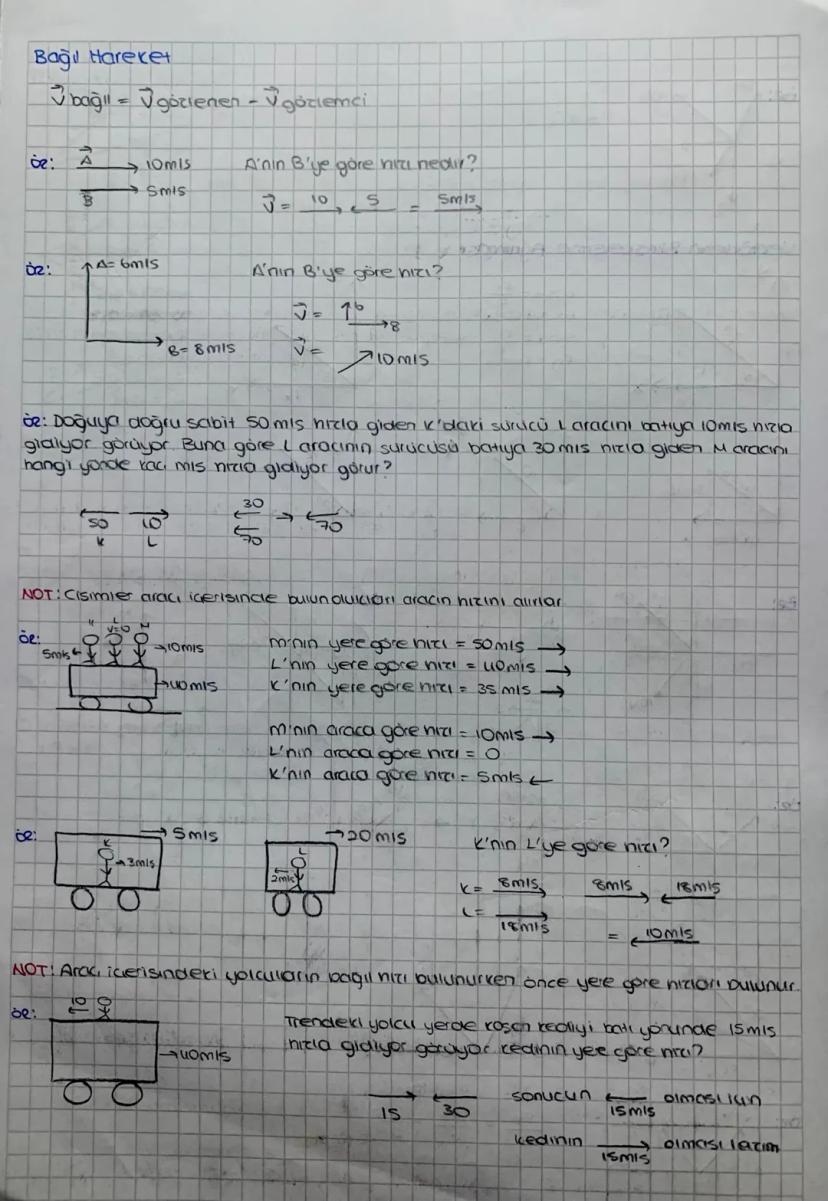 Bağıl Hareket
V bağıl = V gözlenen - V gözlemci
öz: A 10m/s A'nın B'ye göre hızı nedir?
B 5m/s V = 10 5 = 5m/s
öz: A= 6m/s A'nın B'ye göre hızı?
V = 6 8
B= 8m/s V = 10m/s
öz: Doğuya doğru sabit 50m/s hızla giden K'daki sürücü L aracını batıya 10m/s hızla
gidiyor görüyor. Buna göre L aracının sürücüsü batıya 30m/s hızla giden M aracını
hangi yönde kaç m/s hızla gidiyor görür?
50 10 30 → 70
K L 70
NOT: Cisimler araç içerisinde bulundukları aracın hızını alırlar
öz: K L M
V=0
5m/s ← →10m/s m'nin yere göre hızı = 50m/s →
L'nin yere göre hızı = 40m/s →
→40m/s K'nın yere göre hızı = 35m/s →
m'nin araca göre hızı = 10m/s →
L'nin araca göre hızı = 0
K'nın araca göre hızı = 5m/s ←
öz: →5m/s →20m/s K'nın L'ye göre hızı?
K →3m/s L 2m/s K= 8m/s 8m/s 18m/s
L= 18m/s = 10m/s
NOT: Araç içerisindeki yolcuların bağıl hızı bulunurken önce yere göre hızları bulunur.
öz: 10 Trendeki yolcu yerde koşan kediyi batı yönünde 15m/s
→40m/s hızla gidiyor görüyor. kedinin yee göre hızı?
15 30 sonucun 15m/s olması için
kedinin 15m/s olması lazım